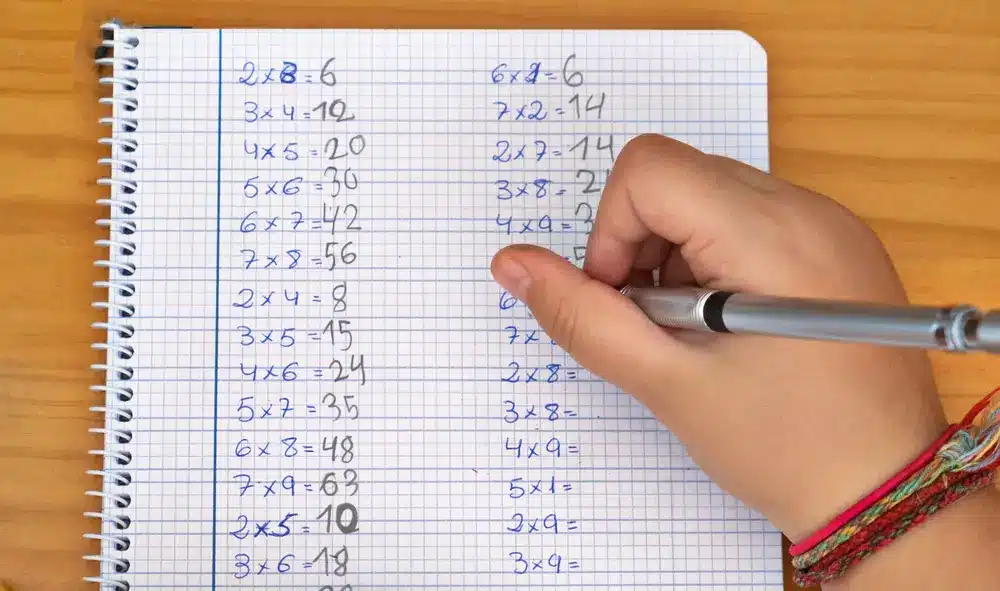 2×3=6
3×4=12
4×5=20
5×6=30
6×7=42
7×8=56
2×4=8
3×5=15
4×6=24
5×7=35
6×8=48
7×9=63
2×5=10
3×6=18
6×1=6
7×2=14
2×7=14
3×8=2
4×9=3
=5
6
7×
2×8=
3×8=
4×9=
5×1=
2×9=
3×9=